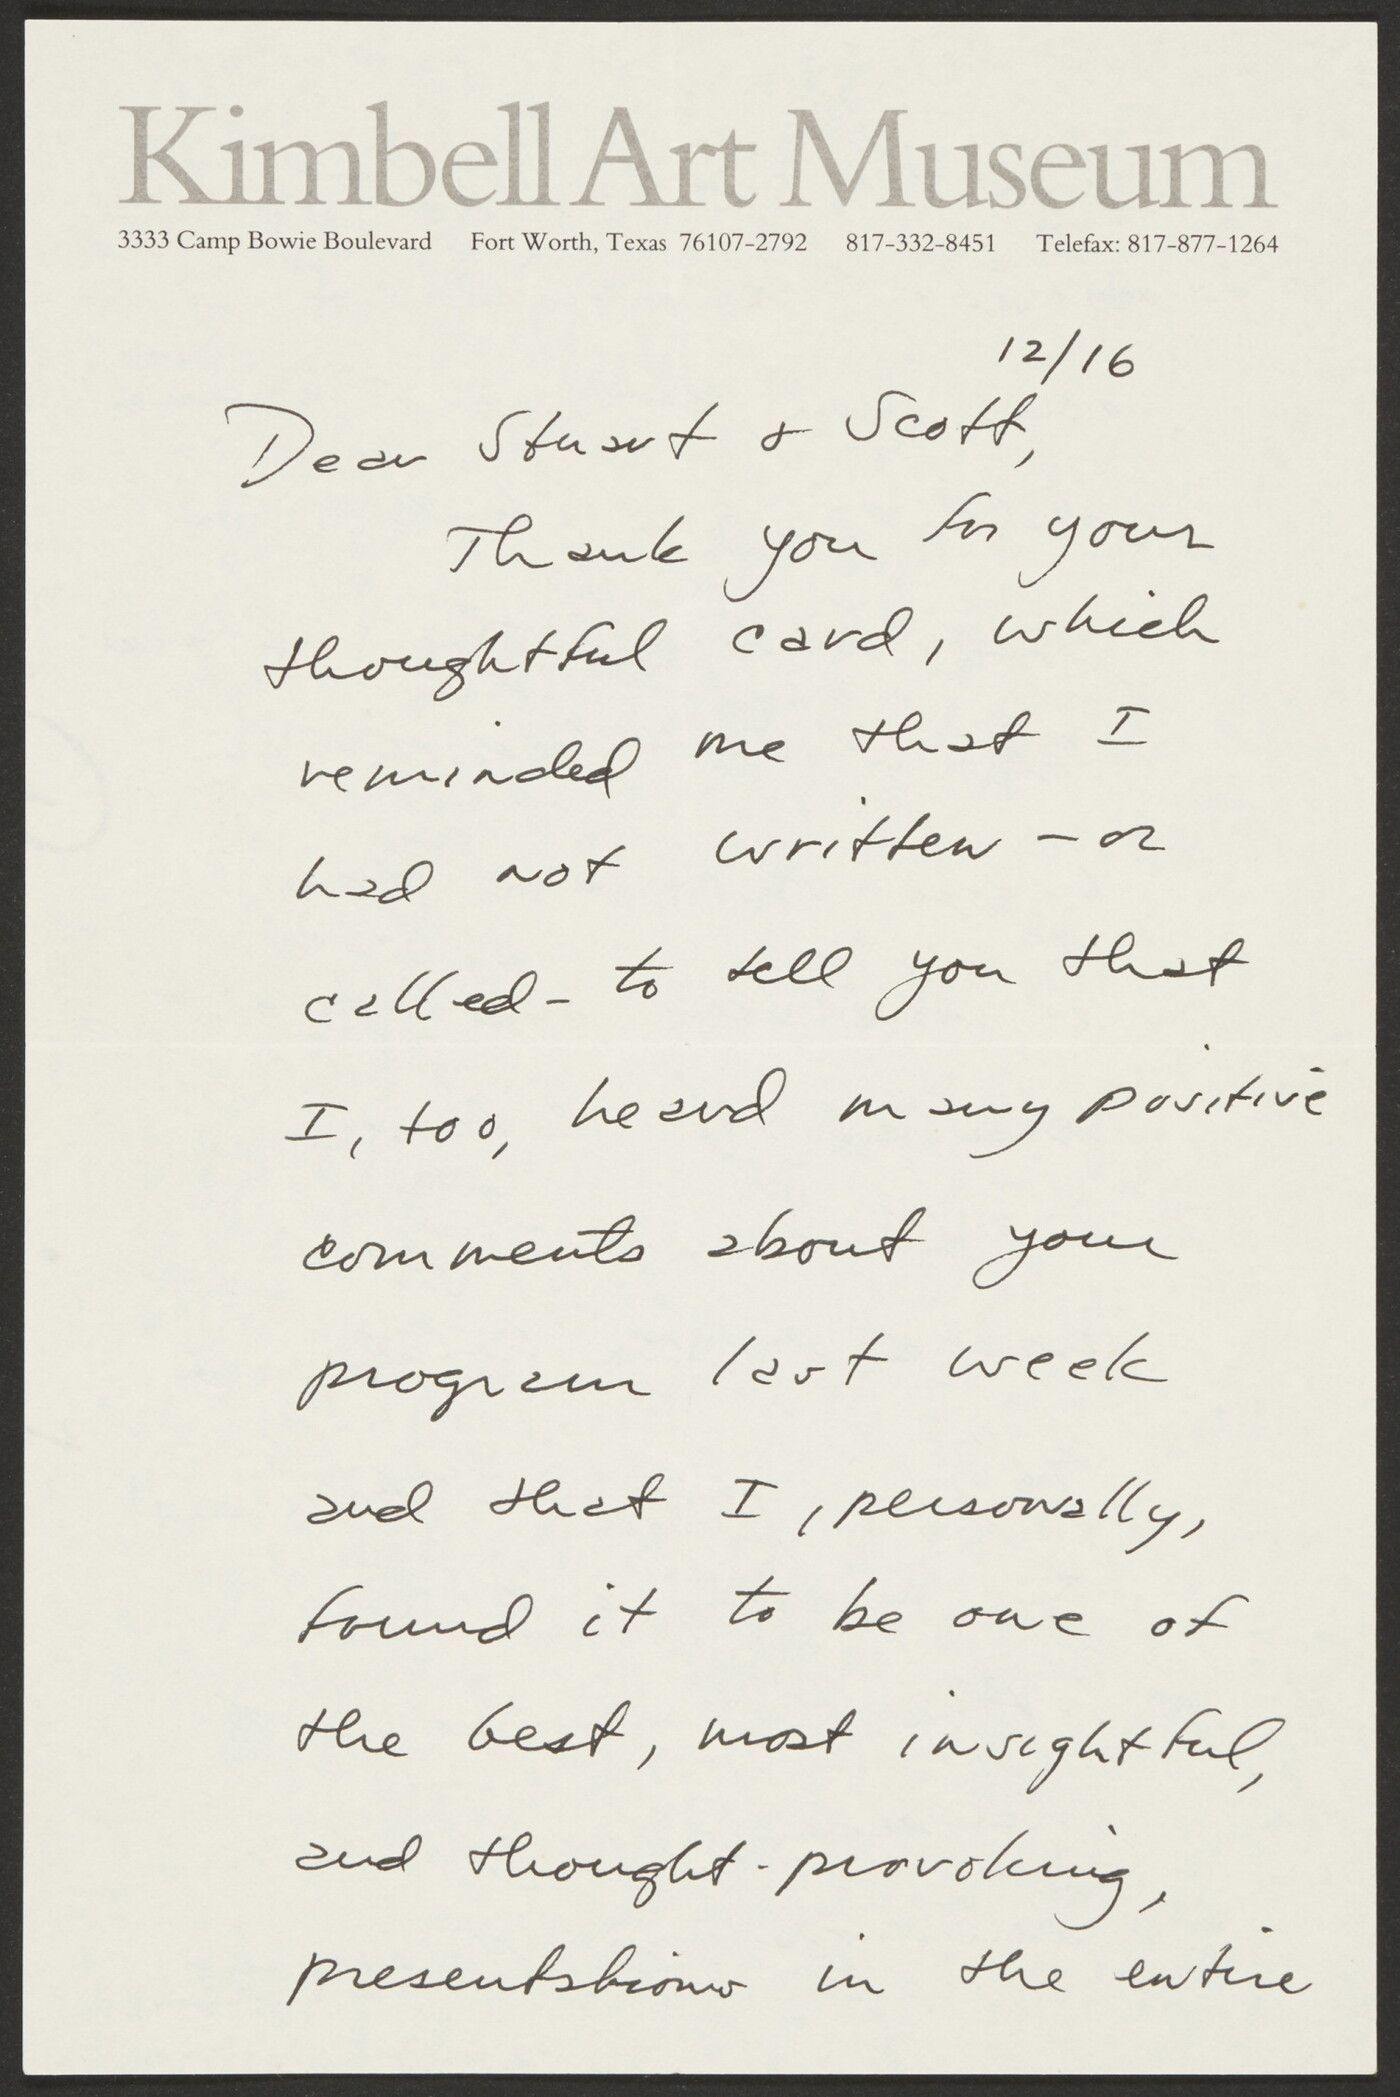 Kimbell Art Museum
3333 Camp Bowie Boulevard Fort Worth, Texas 76107-2792 817-332-8451 Telefax: 817-877-1264
12/16
Dear Stuart & Scott,
Thank you for your
thoughtful card, which
reminded me that I
had not written - or
called - to tell you that
I, too, heard many positive
comments about your
program last week
and that I, personally,
found it to be one of
the best, most insightful,
and thought-provoking,
presentations in the entire